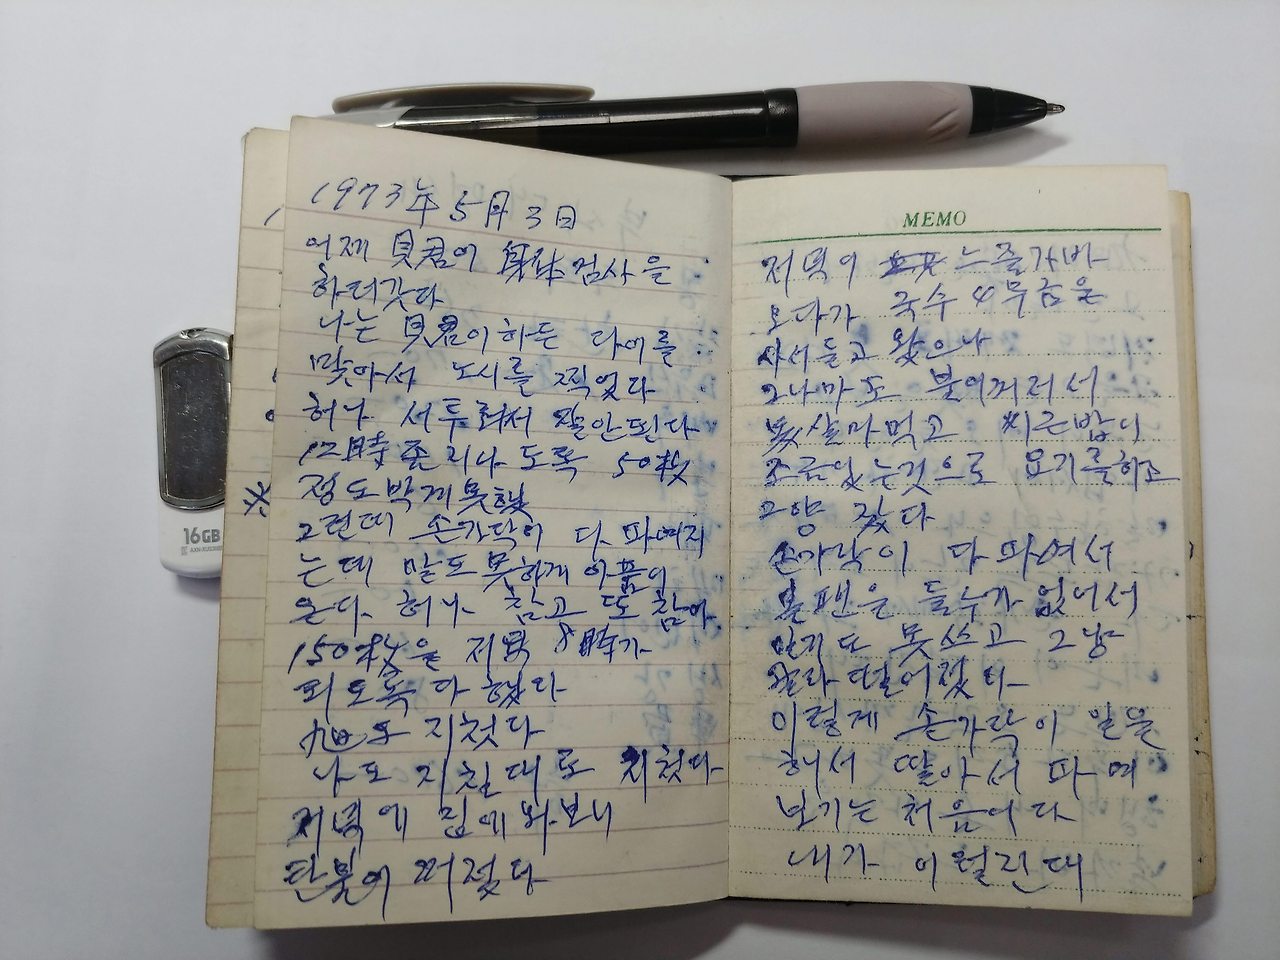 1973年 5月 3日
어제 貝君이 身体검사을
하러갓다
나는 貝君이하든 다이를
맟아서 노시를 찍었다
허나 서투러서 잘안띤다
12時 지나도록 50枚
정도박게못했
그런데 손가락이 다 파여지
는데 말도못하게 아픔이
온다 허나 참고 또 참아
150枚을 저녁 8時가
되도록 다 했다
지첫다
나도 지칠대로 지첫다
저녁에 집에 와보니
탄불이 꺼젔다
MEMO
저녁이 느즐가바
오다가 국수 4무금은
사서들고 왔으나
그나마도 불이꺼러서
못살마먹고 찌근밥이
조금있는것으로 요기를하고
그양 잤다
손가락이 다파여서
볼팬은 들누가 없어서
일기도 못쓰고 그냥
골라떨어젔다
이렇게 손가락이 일을
해서 딸아서 파여
보기는 처음이다
내가 이럴진대
16GB